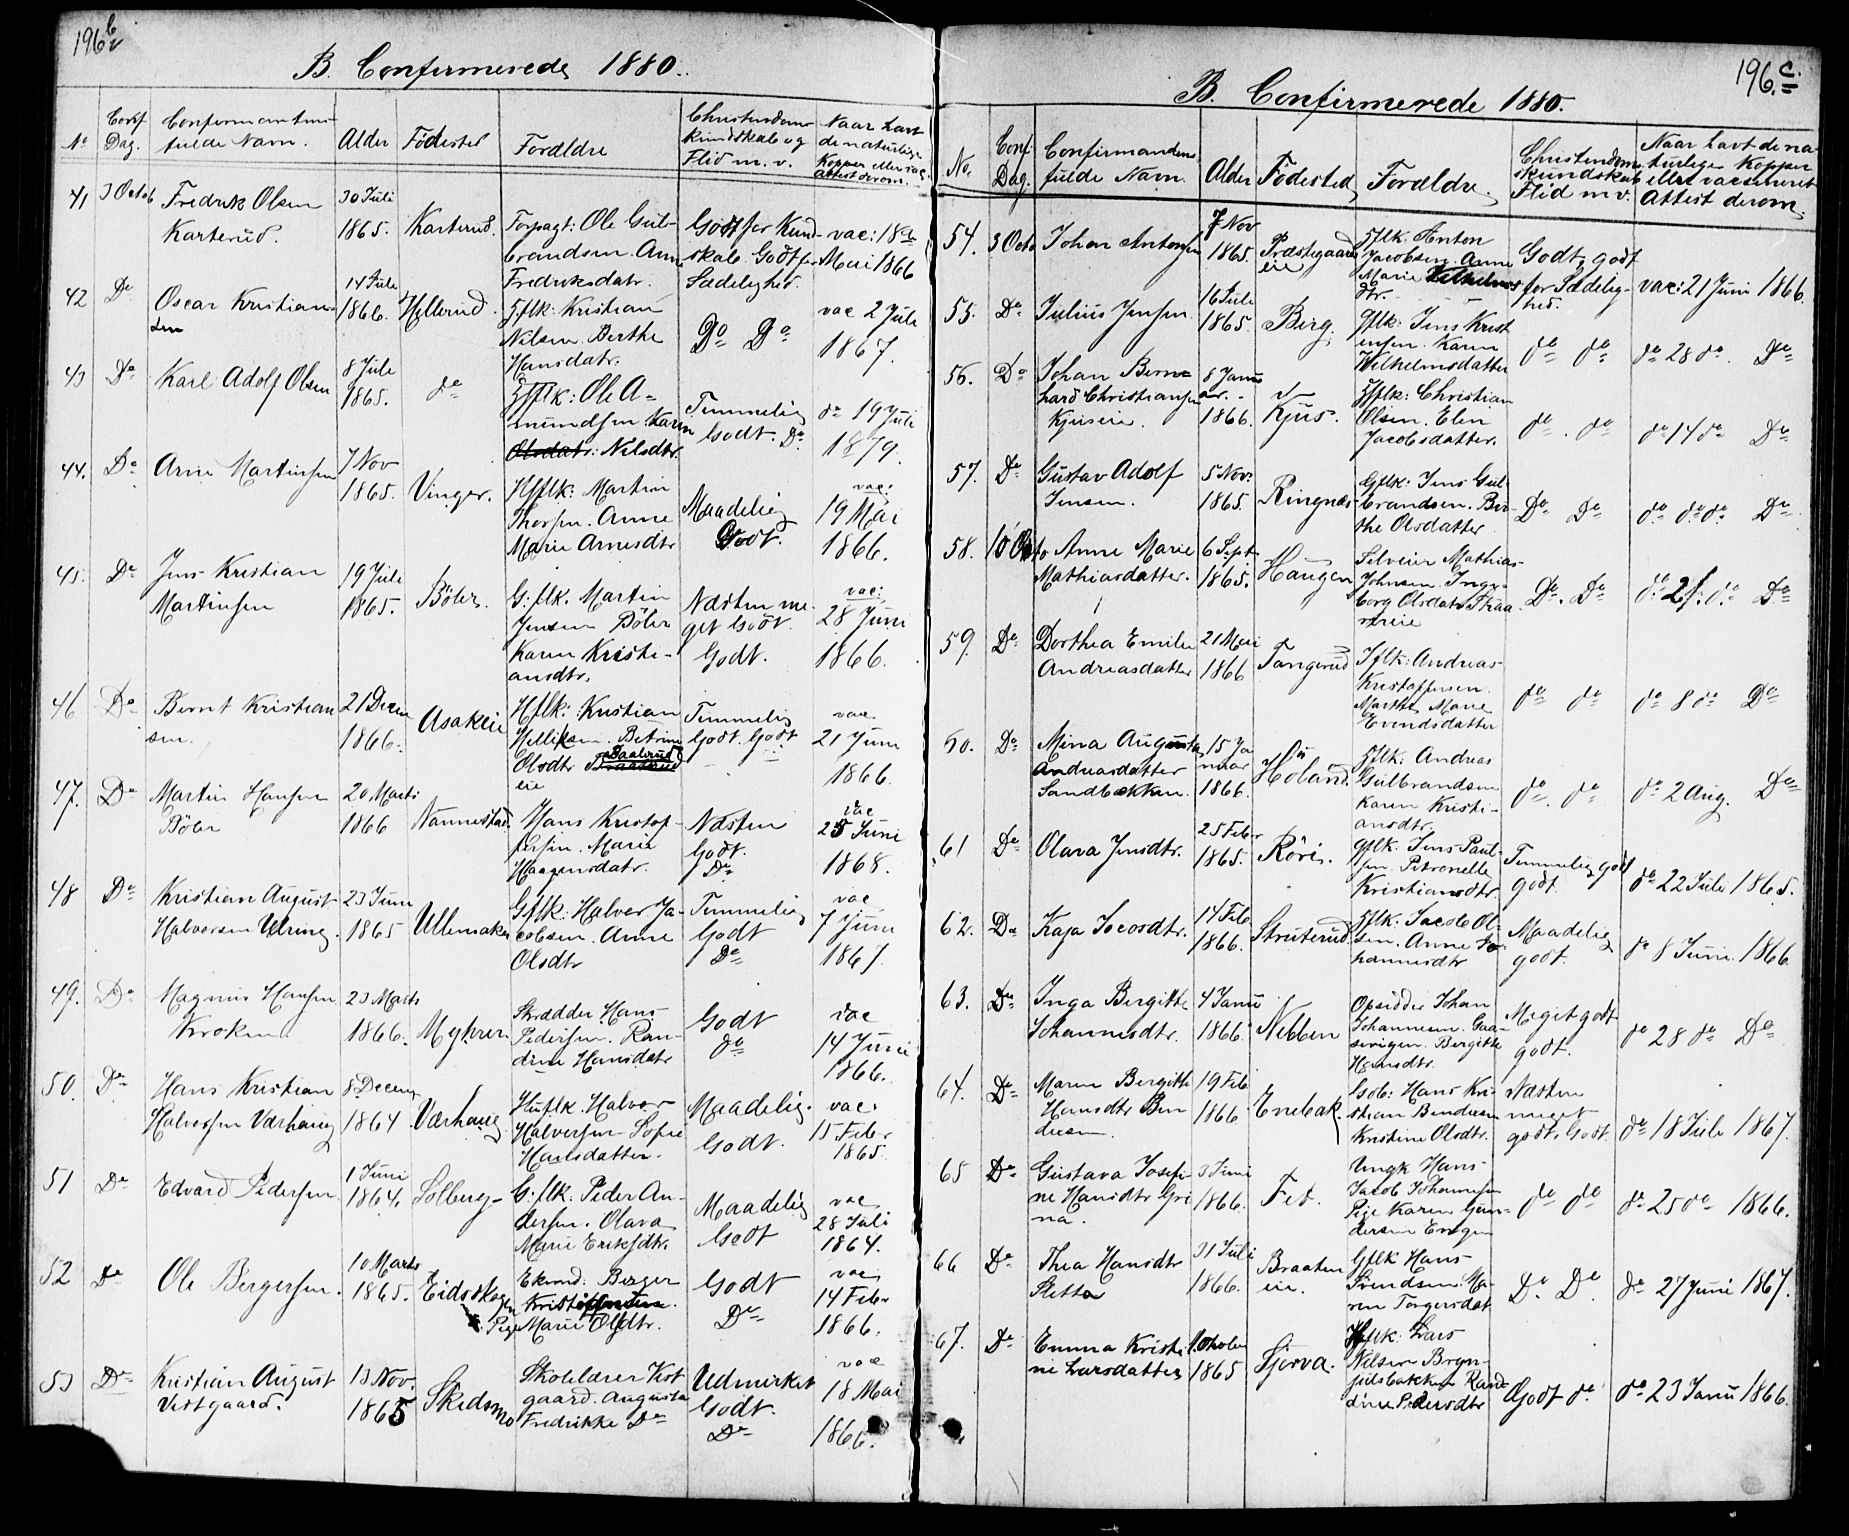 196 b
B. Confirmerede 1880.
No
Conf. Dag.
Confirmantens fulde Navn.
Alder
Födested
Forældre
Christendoms kundskab og Flid m. v.
Naar havt de naturlige Kopper eller vac. Attest derom.
41 3 Octob Fredrik Olsen Karterud. 30 Juli 1865. Karterud. Forpagt: Ole Gulbrandsen. Anne Fredriksdatr. Godt for Kundskab. Godt for Sædelighed. vac: 18de Mai 1866
42 Do Oscar Kristiansen 14 Juli 1866. Hyllerud. Gflk: Kristian Nilsen. Berthe Hansdatr. Do Do vac 2 Juli 1867.
43 Do Karl Adolf Olsen 8 Juli 1865. do Gflk: Ole Amundsen. Karen Olsdatr. Nilsdtr. Temmelig Godt. Do do 19 Juli 1879.
44. Do Arne Martinsen 7 Nov 1865. Vinger. Hflk: Martin Thorsen. Anne Marie Arnesdtr Maadelig Godt. vac: 19 Mai 1866.
45. Do Jens Kristian Martinsen 19 Juli 1865. Böler. G:flk. Martin Jensen Böler Karen Kristiansdtr. Næsten meget Godt. Godt. vac: 28 Juni 1866.
46 Do Bernt Kristiansen. 21 Decem 1866. Asakeie Hflk: Kristian Helliksen. Betrine Olsdtr eie Temmelig Godt. Godt vac 21 Juni 1866.
47. Do Martin Hansen Böler 20 Marts 1866 Nannestad. Hans Kristoffersen. Marie Haagensdatr. Næsten Godt. Do vac 25 Juni 1868.
48 Do Kristian August Halvorsen 23 Juni 1865 Ullensaker Gflk: Halvor Jacobsen. Anne Olsdtr Temmelig Godt Do vac 7 Juni 1867.
49. Do Magnus Hansen Kroken. 23 Marts 1866. Myhrer Skrædder Hans Pedersen. Randine Hansdatr Godt do vac 14 Juni 1866.
50. Do Hans Kristian Halvorsen Værhaug 8 Decem 1864 Værhaug Huflk. Halvor Halvorsen Sofie Maadelig. Godt. vac. 15 Febr 1865.
51 Do Edvard Pedersen 1 Juni 1864. Solberg G:flk. Peder Andersen. Olava Marie Eriksdtr. Maadelig Godt vac 28 Juli 1864.
52 Do Ole Bergersen. 10 Marts 1865. Eidsskogen Berger Pige Marie Olsdtr. Godt Do vac 14 Febr 1866.
53 Do Kristian August Vestgaard. 13 Nov. 1865 Skedsmo Skolelærer Vestgaard. Augusta Fredrikke Do Udmerket Godt. Do vac 18 Mai 1866.
196. c.
B. Confirmerede 1880.
No.
Conf. Dag.
Confirmandens fulde Navn.
Alder
Födested
Forældre.
Christendomskundskab Flid m v.
Naar havt de naturlige Kopper eller vaccineret Attest derom.
54. 3 Octo Johan Antonsen 7 Nov 1865. Præstegaardseie Gflk: Anton Jacobsen. Anne Marie Vilhelmsdtr. Godt, godt for Sædelighed. vac: 21 Juni 1866.
55. Do Julius Jensen. 16 Juli 1865. Berg. Gflk: Jens Kristensen. Karen Wilhelmsdatter do do do 28 do. Do
56. Do Johan Bernhard Christiansen Kjuseie. 8 Januar. 1866. Kjus. Gflk: Christian Olsen. Elen Jacobsdatter. do. do do 14 do Do
57. Do Gustav Adolf Jensen. 5 Nov: 1865. Ringnæs Gflk: Jens Gulbrandsen. Berthe Olsdatter Do Do do do do Do
58. 10 Octo Anne Marie Mathiasdatter. 6 Sept 1865. Haugen Selveier Mathias Johnsen. Ingeborg Olsdatr Do. Do do 21. do Do
59. Do Dorthea Emilie Andreasdatter 21 Mai 1866 Tangerud Gflk: Andreas Kristoffersen. Marthe Marie Evendsdatter do do do 8 do Do
60. Do Mina Augusta Andreasdatter Sandbækken. 15 Januar 1866. Höland. Gflk. Andreas Gulbrandsen Karen Kristiansdtr. do. do do 2 Aug. Do
61 Do Olava Jensdtr. 25 Febr 1865. Röri. Gflk: Jens Paulsen. Petronelle Kristiansdtr. Temmelig godt godt. do 22 Juli 1865.
62. Do Kaja 14 Feb 1866. Struterud. Gflk: Jacob Olsen. Anne Johannesdtr Maadelig godt. do 8 Juni 1866.
63. Do Inga Bergitte Johannesdtr. 4 Janu 1866. Nebben Opsidder Johan Johannesen. Bergitte Hansdtr. Meget godt godt. do 28 do Do
64. Do Maren Bergitte Hansdtr Bendiesen. 19 Feb 1866. Enebak Hans Kristian Bendiesen Kristine Olsdtr. Næsten meget godt. Godt. do 18 Juli 1867.
65 Do Gustava Josefine Hansdtr Grina. 3 Juni 1866. Fet. Ungk Hans Jacob Johannesen Pige Karen Gundersen Engen do do do 25 do 1866.
66 Do Thea Hansdtr Sletta 31 Juli 1866. Braateneie. Gflk Hans Svendsen. Maren Torgersdat Do. Do do 27 Juni 1867.
67. Do Emma Kristine Larsdatter 1 October 1865 Gjerva. Hflk: Lars Nilsen Randine Pedersdtr Godt do do 23 Janu 1866.